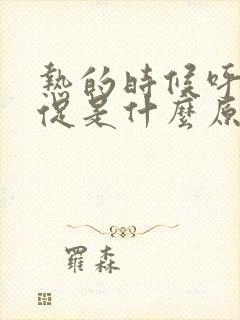 熱的時候呼
促是什麼原
羅森